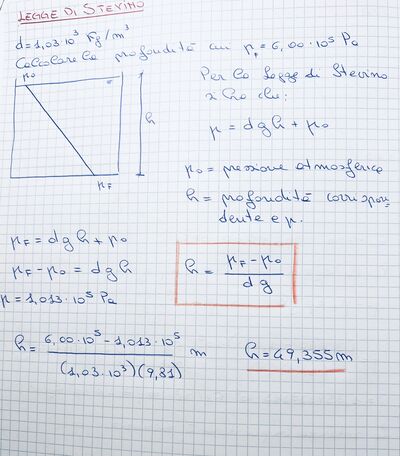 LEGGE DI STEVINO
d = 1,03·10³ Kg/m³
Calcolare la profondità cui p_F = 6,00·10⁵ Pa
p₀
h
p_F
Per la legge di Stevino
si ha che:
p = dgh + p₀
p₀ = pressione atmosferica
h = profondità corrispon
dente e p.
p_F = dgh + p₀
p_F - p₀ = dgh
p = 1,013·10⁵ Pa
h = p_F - p₀ / dg
h = 6,00·10⁵ - 1,013·10⁵ / (1,03·10³)(9,81) m
h = 49,355 m